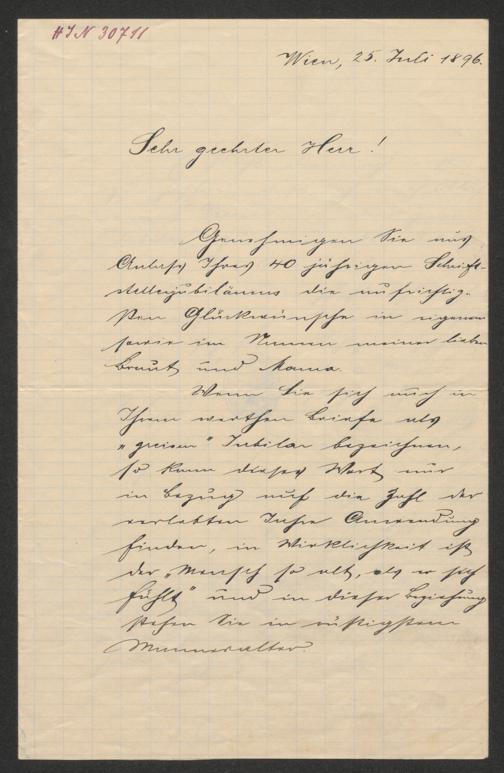 HIN 30711
Wien, 25. Juli 1896.
Sehr geehrter Herr!
Genehmigen Sie aus
Anlass Ihres 40 jährigen Schrift-
stellerjubiläums die aufrichtig-
sten Glückwünsche in eigenem
sowie im Namen meiner lieben
Braut und Mama.
Wenn Sie sich auch in
Ihrem werthen Briefe als
"greisen" Jubilar bezeichnen,
so kann dieses Wort nur
in Bezug auf die Zahl der
verlebten Jahre Anwendung
finden, in Wirklichkeit ist
der "Mensch so alt, als er sich
fühlt" und in dieser Beziehung
stehen Sie in rüstigstem
Mannesalter.